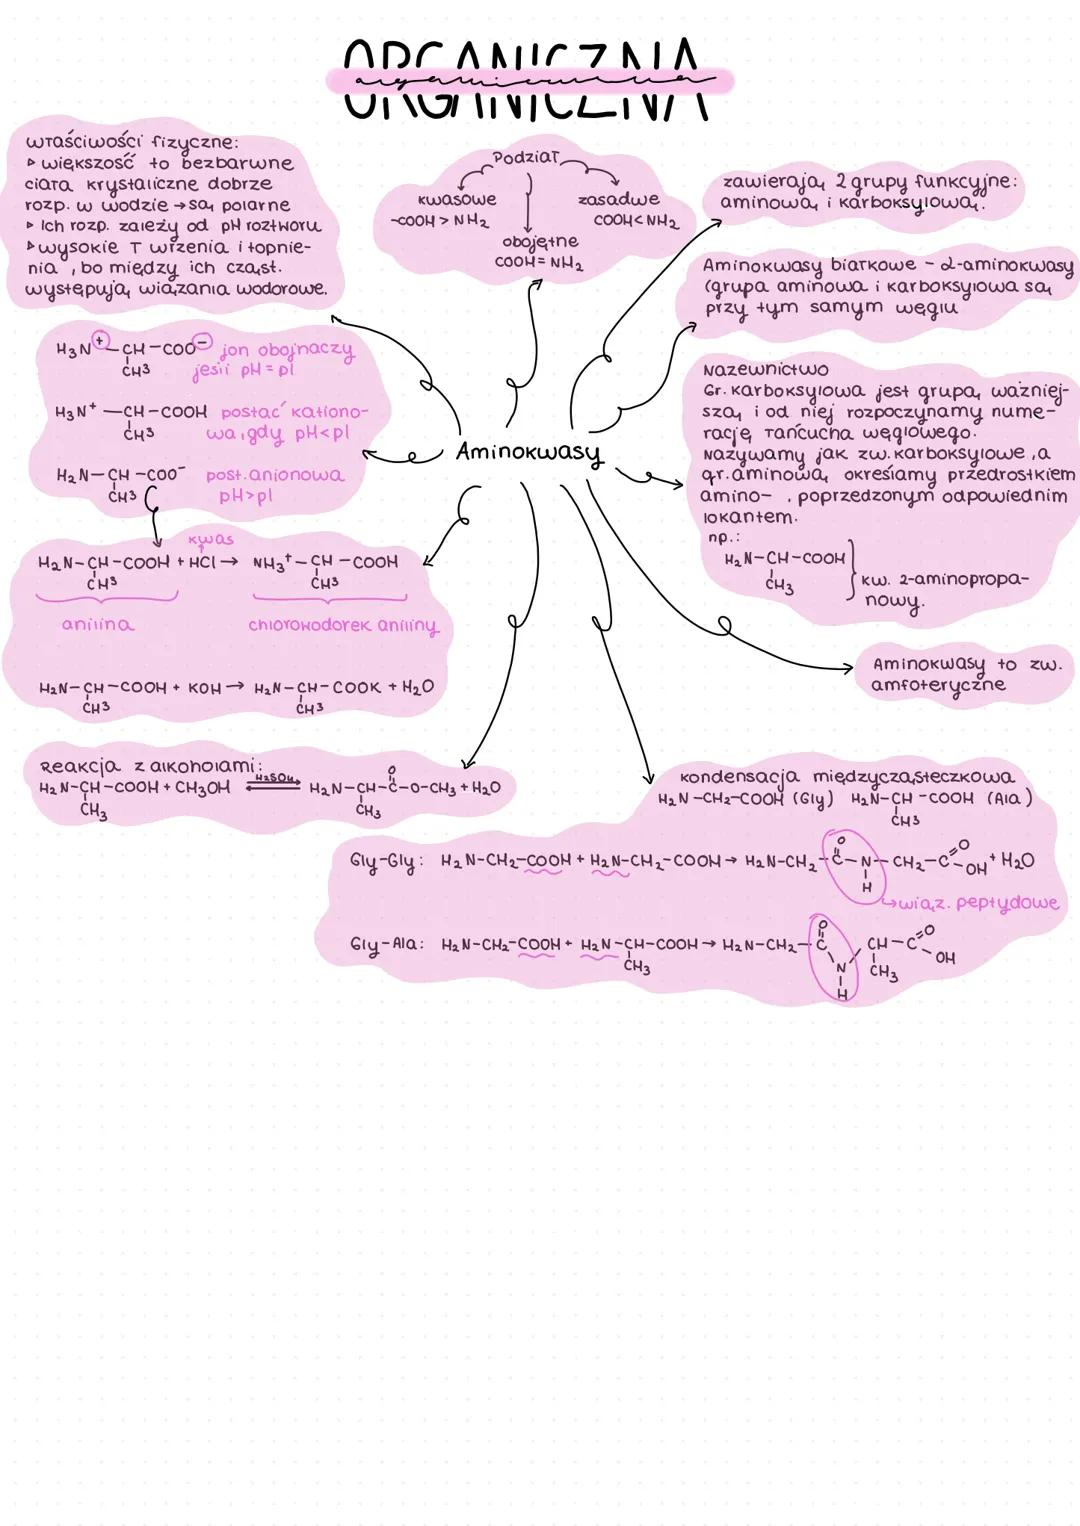 ORGANICZNA
organiczna
właściwości fizyczne:
▹ większość to bezbarwne
ciała krystaliczne dobrze
rozp. w wodzie → są polarne
▹ Ich rozp. zależy od pH roztworu
▹ wysokie T wrzenia i topnie-
nia, bo między ich cząst.
występują wiązania wodorowe.
Podział
kwasowe
-COOH > NH₂
obojętne
COOH = NH₂
zasadwe
COOH < NH₂
zawierają 2 grupy funkcyjne:
aminową i karboksylową.
Aminokwasy białkowe - α-aminokwasy
(grupa aminowa i karboksylowa są
przy tym samym węglu
H₃N⁺—CH—COO⁻ jon obojnaczy
CH3 jeśli pH = pI
H₃N⁺—CH—COOH postać kationo-
CH3 wa, gdy pH<pI
H₂N—CH—COO⁻ post. anionowa
CH3 pH>pI
Aminokwasy
Nazewnictwo
Gr. karboksylowa jest grupą ważniej-
szą i od niej rozpoczynamy nume-
rację łańcucha węglowego.
Nazywamy jak zw. karboksylowe, a
gr. aminową określamy przedrostkiem
amino-, poprzedzonym odpowiednim
lokantem.
np.:
H₂N-CH-COOH
CH₃
kw. 2-aminopropa-
nowy.
kwas
H₂N-CH-COOH + HCl → NH₃⁺-CH-COOH
CH3 CH3
anilina chlorowodorek aniliny
H₂N-CH-COOH + KOH → H₂N-CH-COOK + H₂O
CH3 CH3
Aminokwasy to zw.
amfoteryczne
Reakcja z alkoholami:
H₂SO₄ O
H₂N-CH-COOH + CH3OH ⇌ H₂N-CH-C-O-CH₃ + H₂O
CH₃ CH₃
kondensacja międzycząsteczkowa
H₂N-CH₂-COOH (Gly) H₂N-CH-COOH (Ala)
CH3
O O
Gly-Gly: H₂N-CH₂-COOH + H₂N-CH₂-COOH → H₂N-CH₂-C-N-CH₂-C-OH + H₂O
H
→ wiąz. peptydowe
O O
Gly-Ala: H₂N-CH₂-COOH + H₂N-CH-COOH → H₂N-CH₂-C CH-C OH
CH₃ N CH₃
H